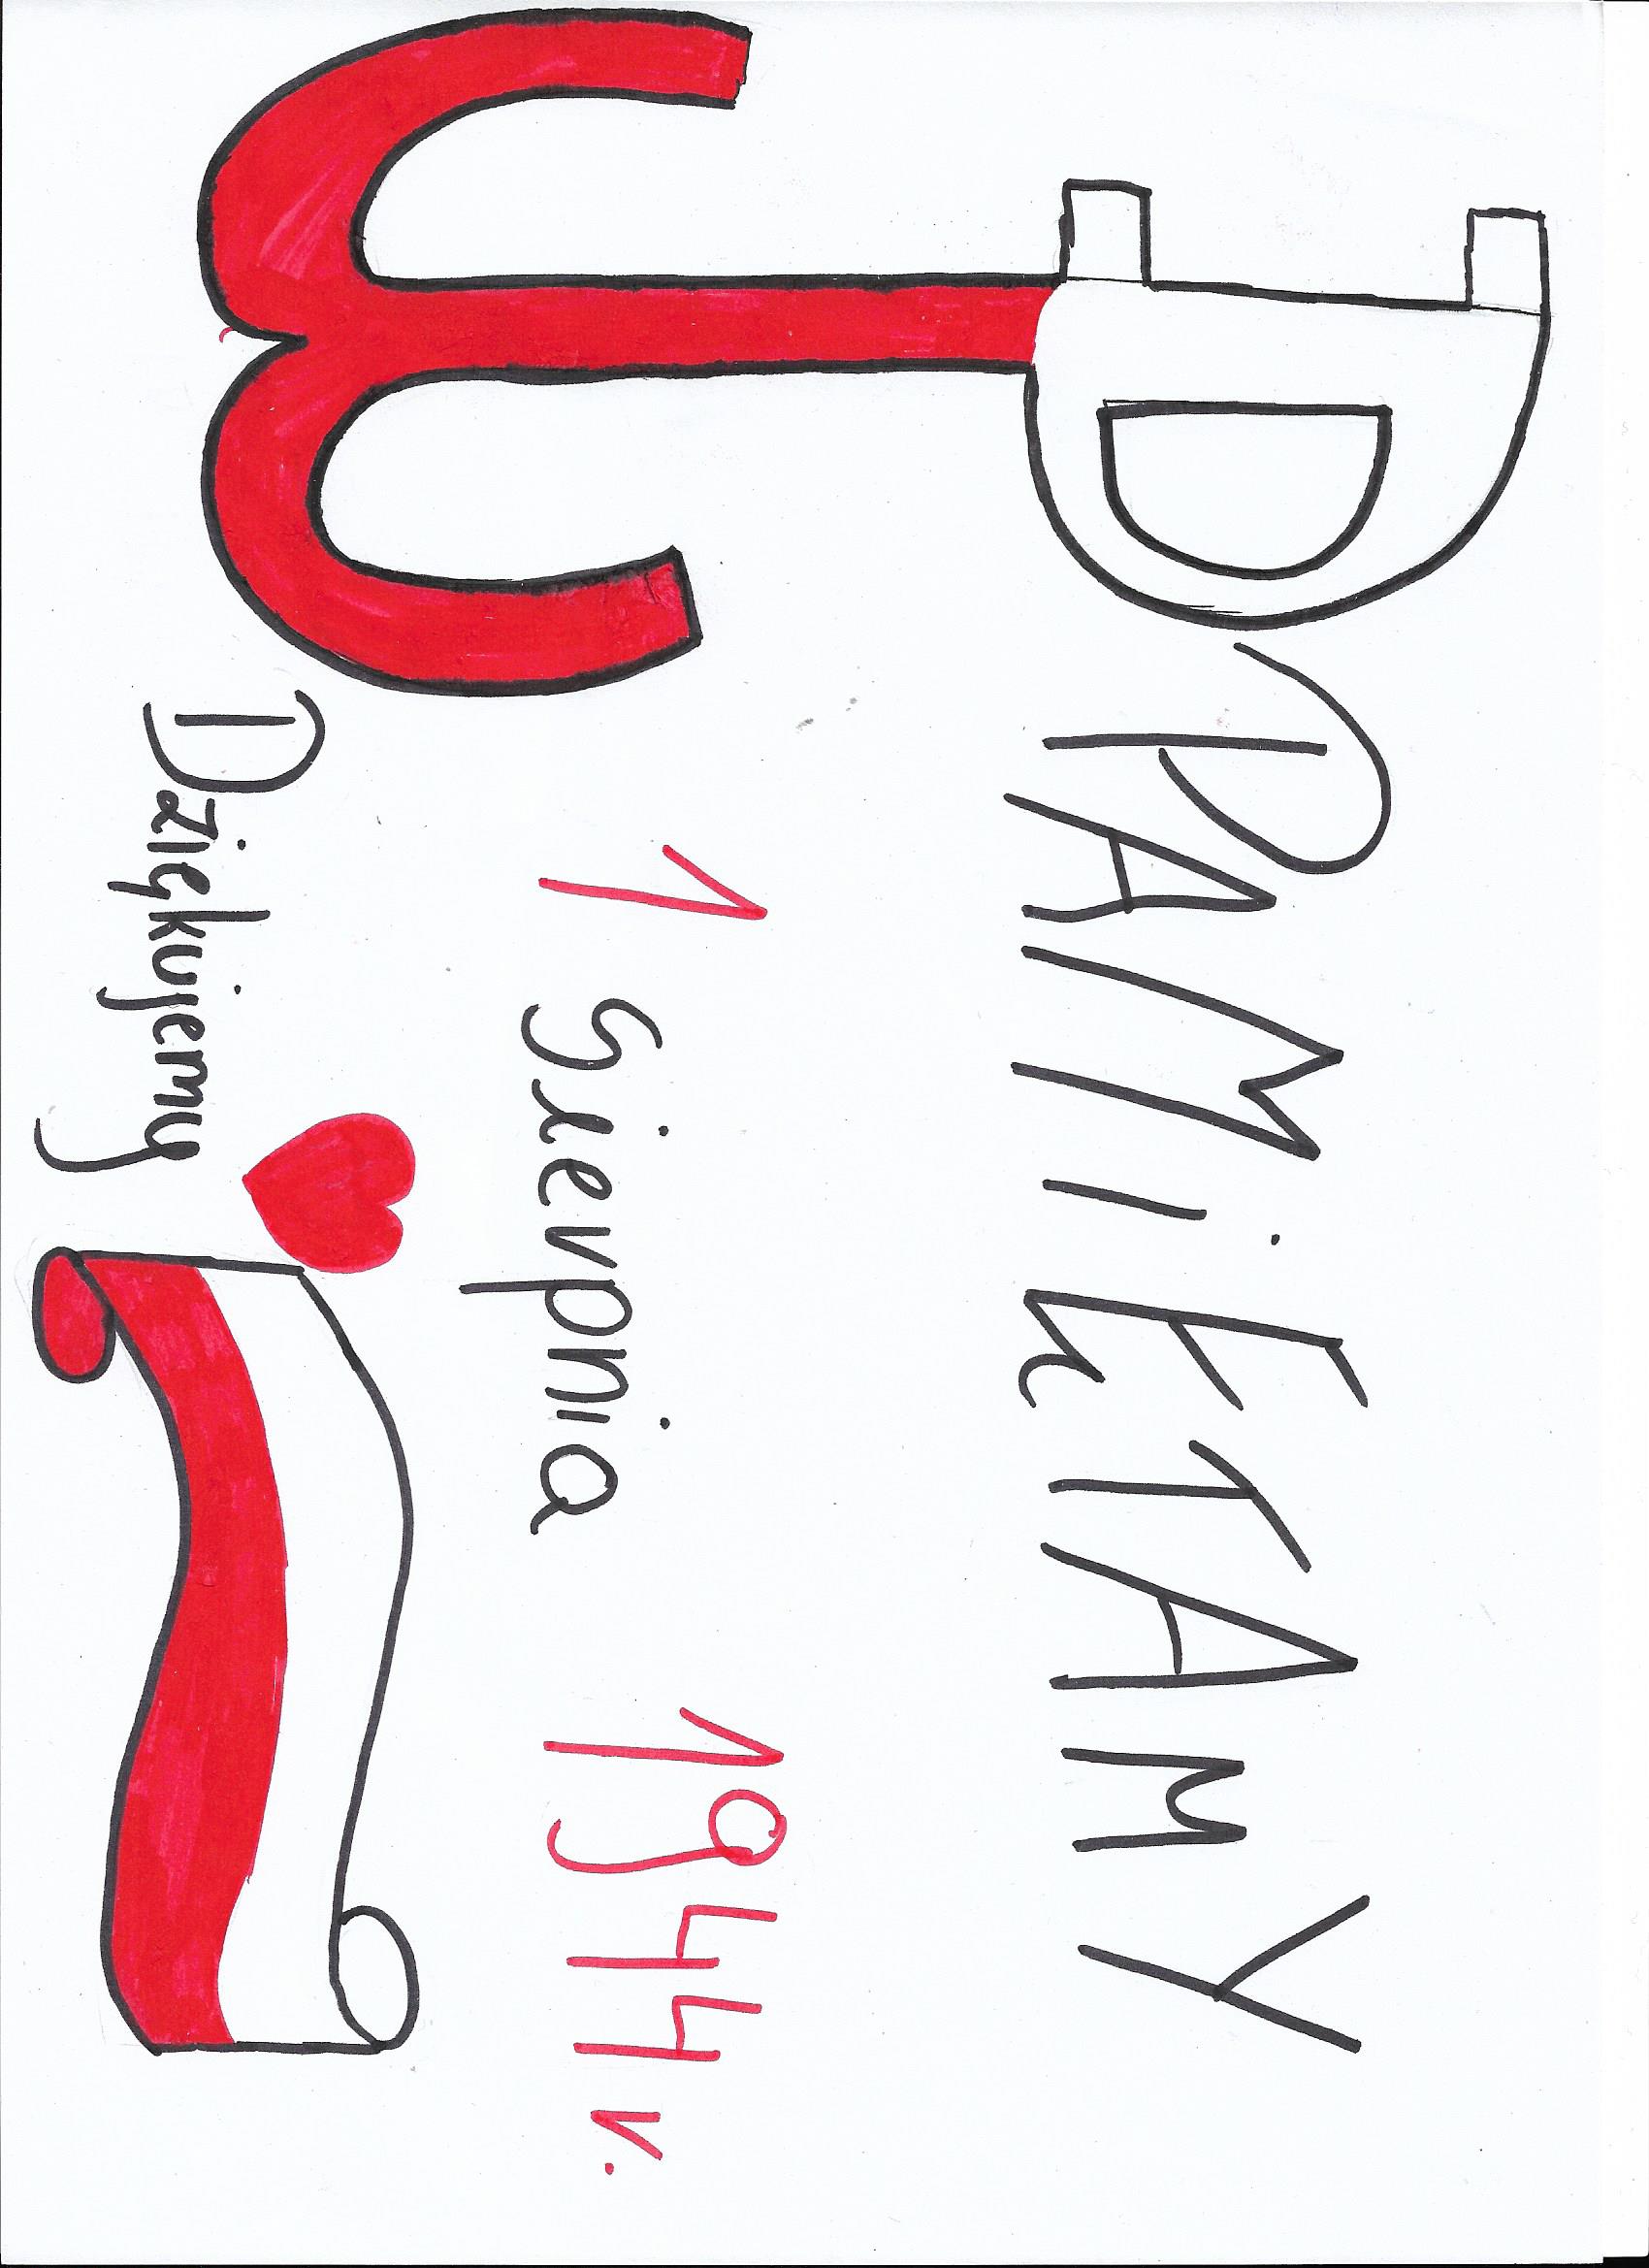 PAMiĘTAMY
1 Sierpnia 1944 r.
Dziękujemy